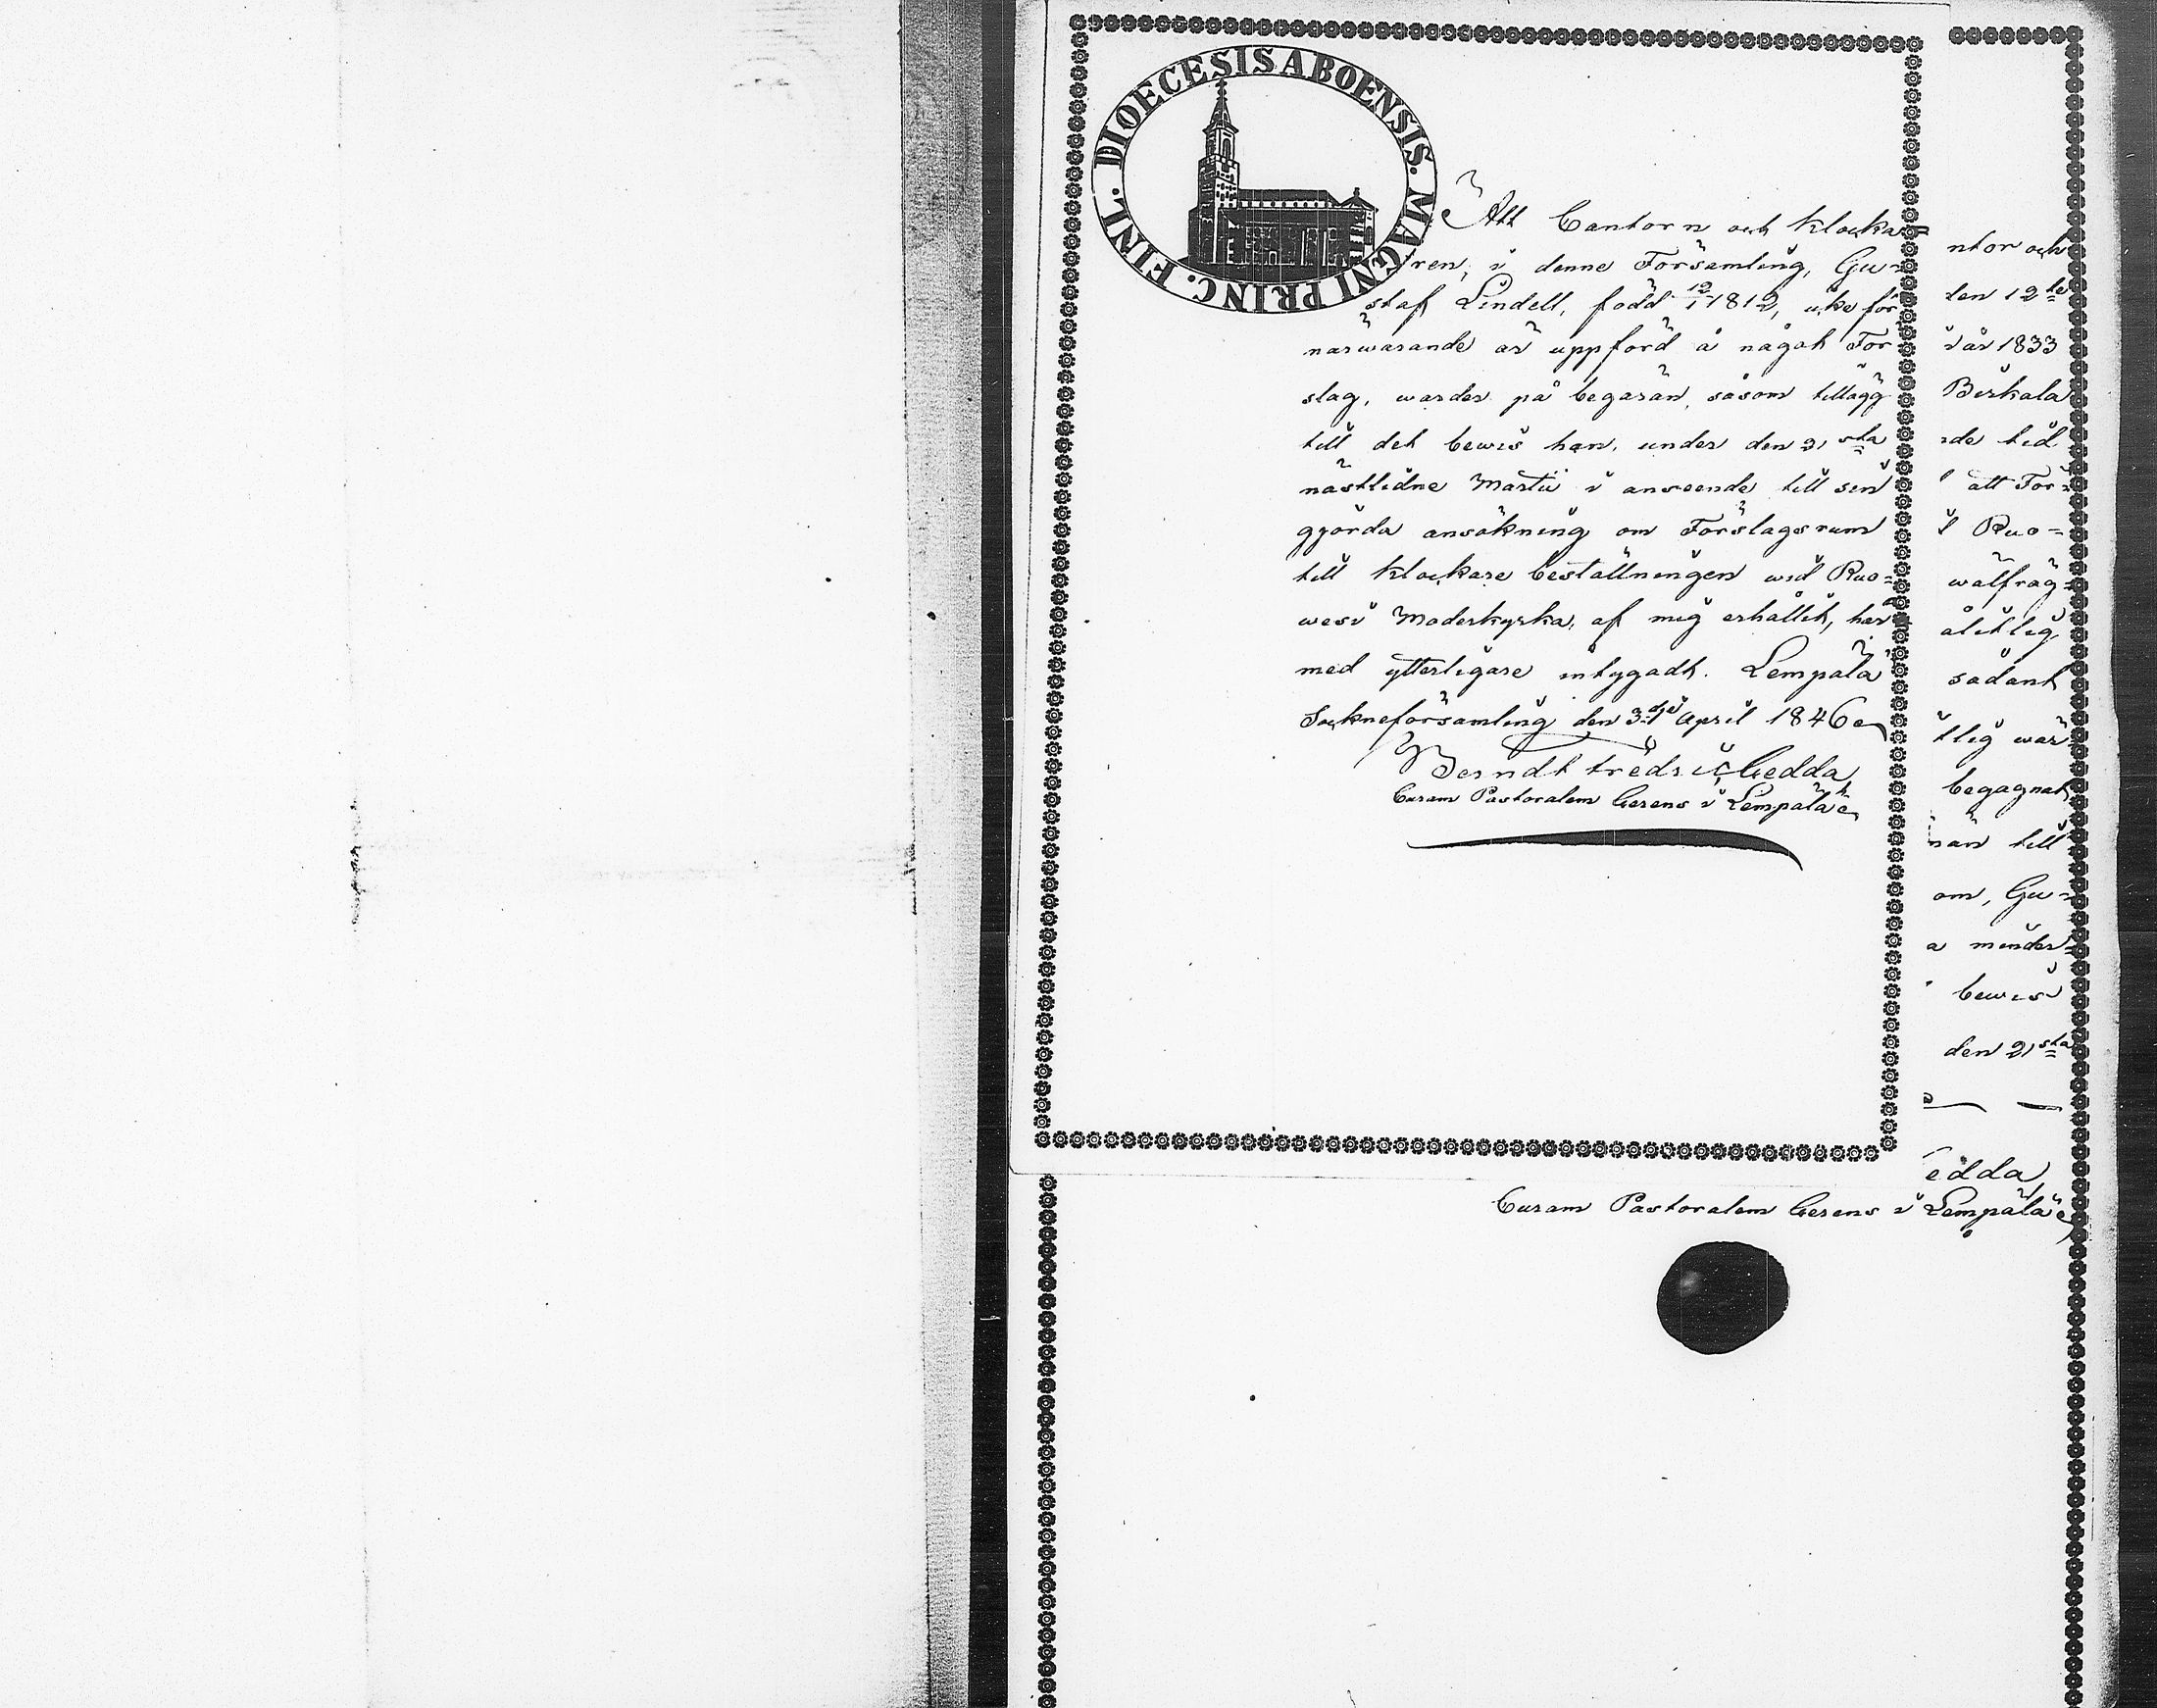 DIOECESIS ABOENSIS. MAGNI PRINC. FINL.
Att Cantorn och klocka=
ren, i denne Församling, Gu=
staf Lindell, född 12/1 1812, icke för
närwarande är uppförd å något För
slag, warder på begäran, såsom tillägg
till det bewis han, under den 21sta
nästledne Martii i anseende till sin
gjorda ansökning om Förslagsrum
till klockare beställningen wid Ruo=
wesi Moderkyrka, af mig erhållit, här
med ytterligare intygadt. Lempälä
Sockneförsamling den 3dje April 1846
Berndt Fredric Gedda,
Curam Pastoralem Gerens i Lempälä
ntor och
den 12te
i år 1833
Birkala
nde tid
att För=
l Ruo=
wälfräg=
ålitlig
sådant
tlig wär
begagnat,
nan till
om, Gu=
a minder=
bewis
den 21sta
edda,
Curam Pastoralem Gerens i Lempälä